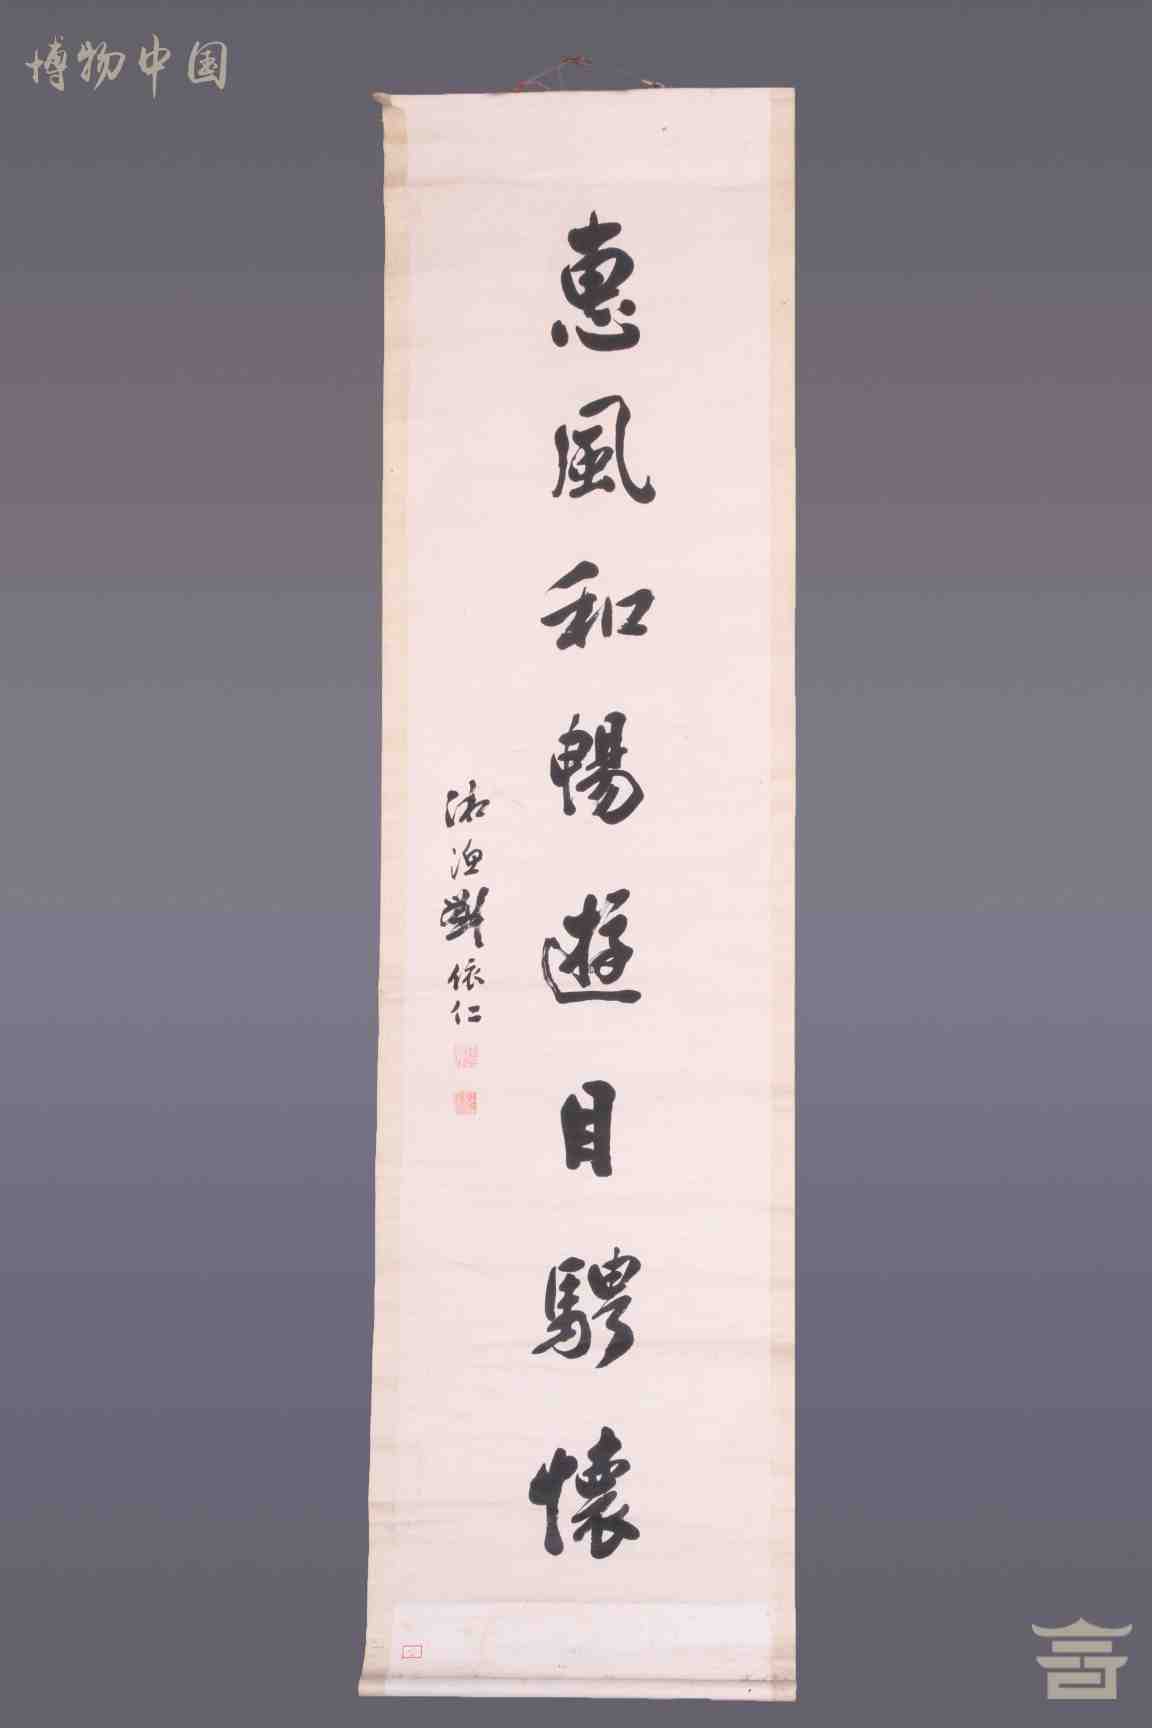 博物中国
惠風和暢遊目騁懷
湘漁劉依仁